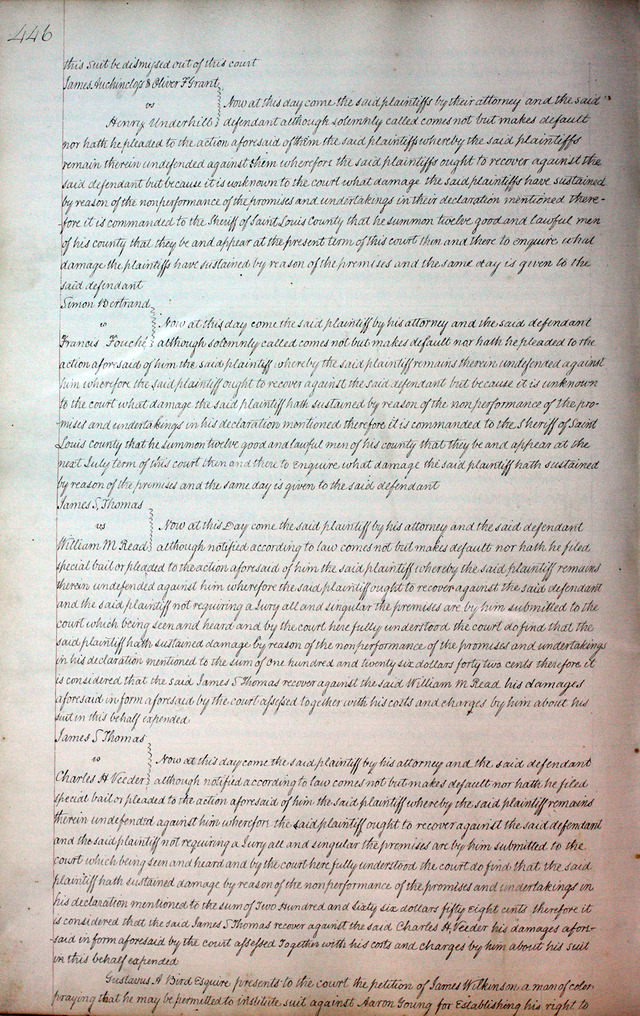 446
this suit be dismissed out of this court
James Auchincloss & Oliver F Grant
vs
Now at this day come the said plaintiffs by their attorney and the said
Henry Underhill defendant although solemnly called comes not but makes default
nor hath he pleaded to the action aforesaid of them the said plaintiffs whereby the said plaintiffs
remain therein undefended against them wherefore the said plaintiffs ought to recover against the
said defendant but because it is unknown to the court what damage the said plaintiffs have sustained
by reason of the nonperformance of the promises and undertakings in their declaration mentioned there-
-fore it is commanded to the Sheriff of Saint Louis County that he summon twelve good and lawful men
of his county that they be and appear at the present term of this court then and there to enquire what
damage the plaintiffs have sustained by reason of the premises and the same day is given to the
said defendant
Simon Bertrand
vs
Now at this day come the said plaintiff by his attorney and the said defendant
Francis Fouche although solemnly called comes not but makes default nor hath he pleaded to the
action aforesaid of him the said plaintiff whereby the said plaintiff remains therein undefended against
him wherefore the said plaintiff ought to recover against the said defendant but because it is unknown
to the court what damage the said plaintiff hath sustained by reason of the nonperformance of the pro-
-mises and undertakings in his declaration mentioned therefore it is commanded to the Sheriff of Saint
Louis county that he summon twelve good and lawful men of his county that they be and appear at the
next July term of this court then and there to enquire what damage the said plaintiff hath sustained
by reason of the premises and the same day is given to the said defendant
James S, Thomas
vs
Now at this Day come the said plaintiff by his attorney and the said defendant
William M. Read although notified according to law comes not but makes default nor hath he filed
special bail or pleaded to the action aforesaid of him the said plaintiff whereby the said plaintiff remains
therein undefended against him wherefore the said plaintiff ought to recover against the said defendant
and the said plaintiff not requiring a Jury all and singular the premises are by him submitted to the
court which being seen and heard and by the court here fully understood the court do find that the
said plaintiff hath sustained damage by reason of the nonperformance of the promises and undertakings
in his declaration mentioned to the sum of one hundred and twenty six dollars forty two cents therefore it
is considered that the said James S Thomas recover against the said William M Read his damages
aforesaid in form aforesaid by the court assessed together with his costs and charges by him about his
suit in this behalf expended
James S Thomas
vs
Now at this day come the said plaintiff by his attorney and the said defendant
Charles H Veeder although notified according to law comes not but makes default nor hath he filed
special bail or pleaded to the action aforesaid of him the said plaintiff whereby the said plaintiff remains
therein undefended against him wherefore the said plaintiff ought to recover against the said defendant
and the said plaintiff not requiring a Jury all and singular the premises are by him submitted to the
court which being seen and heard and by the court here fully understood the court do find that the said
plaintiff hath sustained damage by reason of the nonperformance of the promises and undertakings in
his declaration mentioned to the sum of Two Hundred and Sixty six dollars fifty eight cents therefore it
is considered that the said James S Thomas recover against the said Charles H, Veeder his damages afore-
-said in form aforesaid by the court assessed Together with his costs and charges by him about his suit
in this behalf expended
Gustavus A Bird Esquire presents to the court the petition of James Wilkinson a man of color
praying that he may be permitted to institute suit against Aaron Young for Establishing his right to